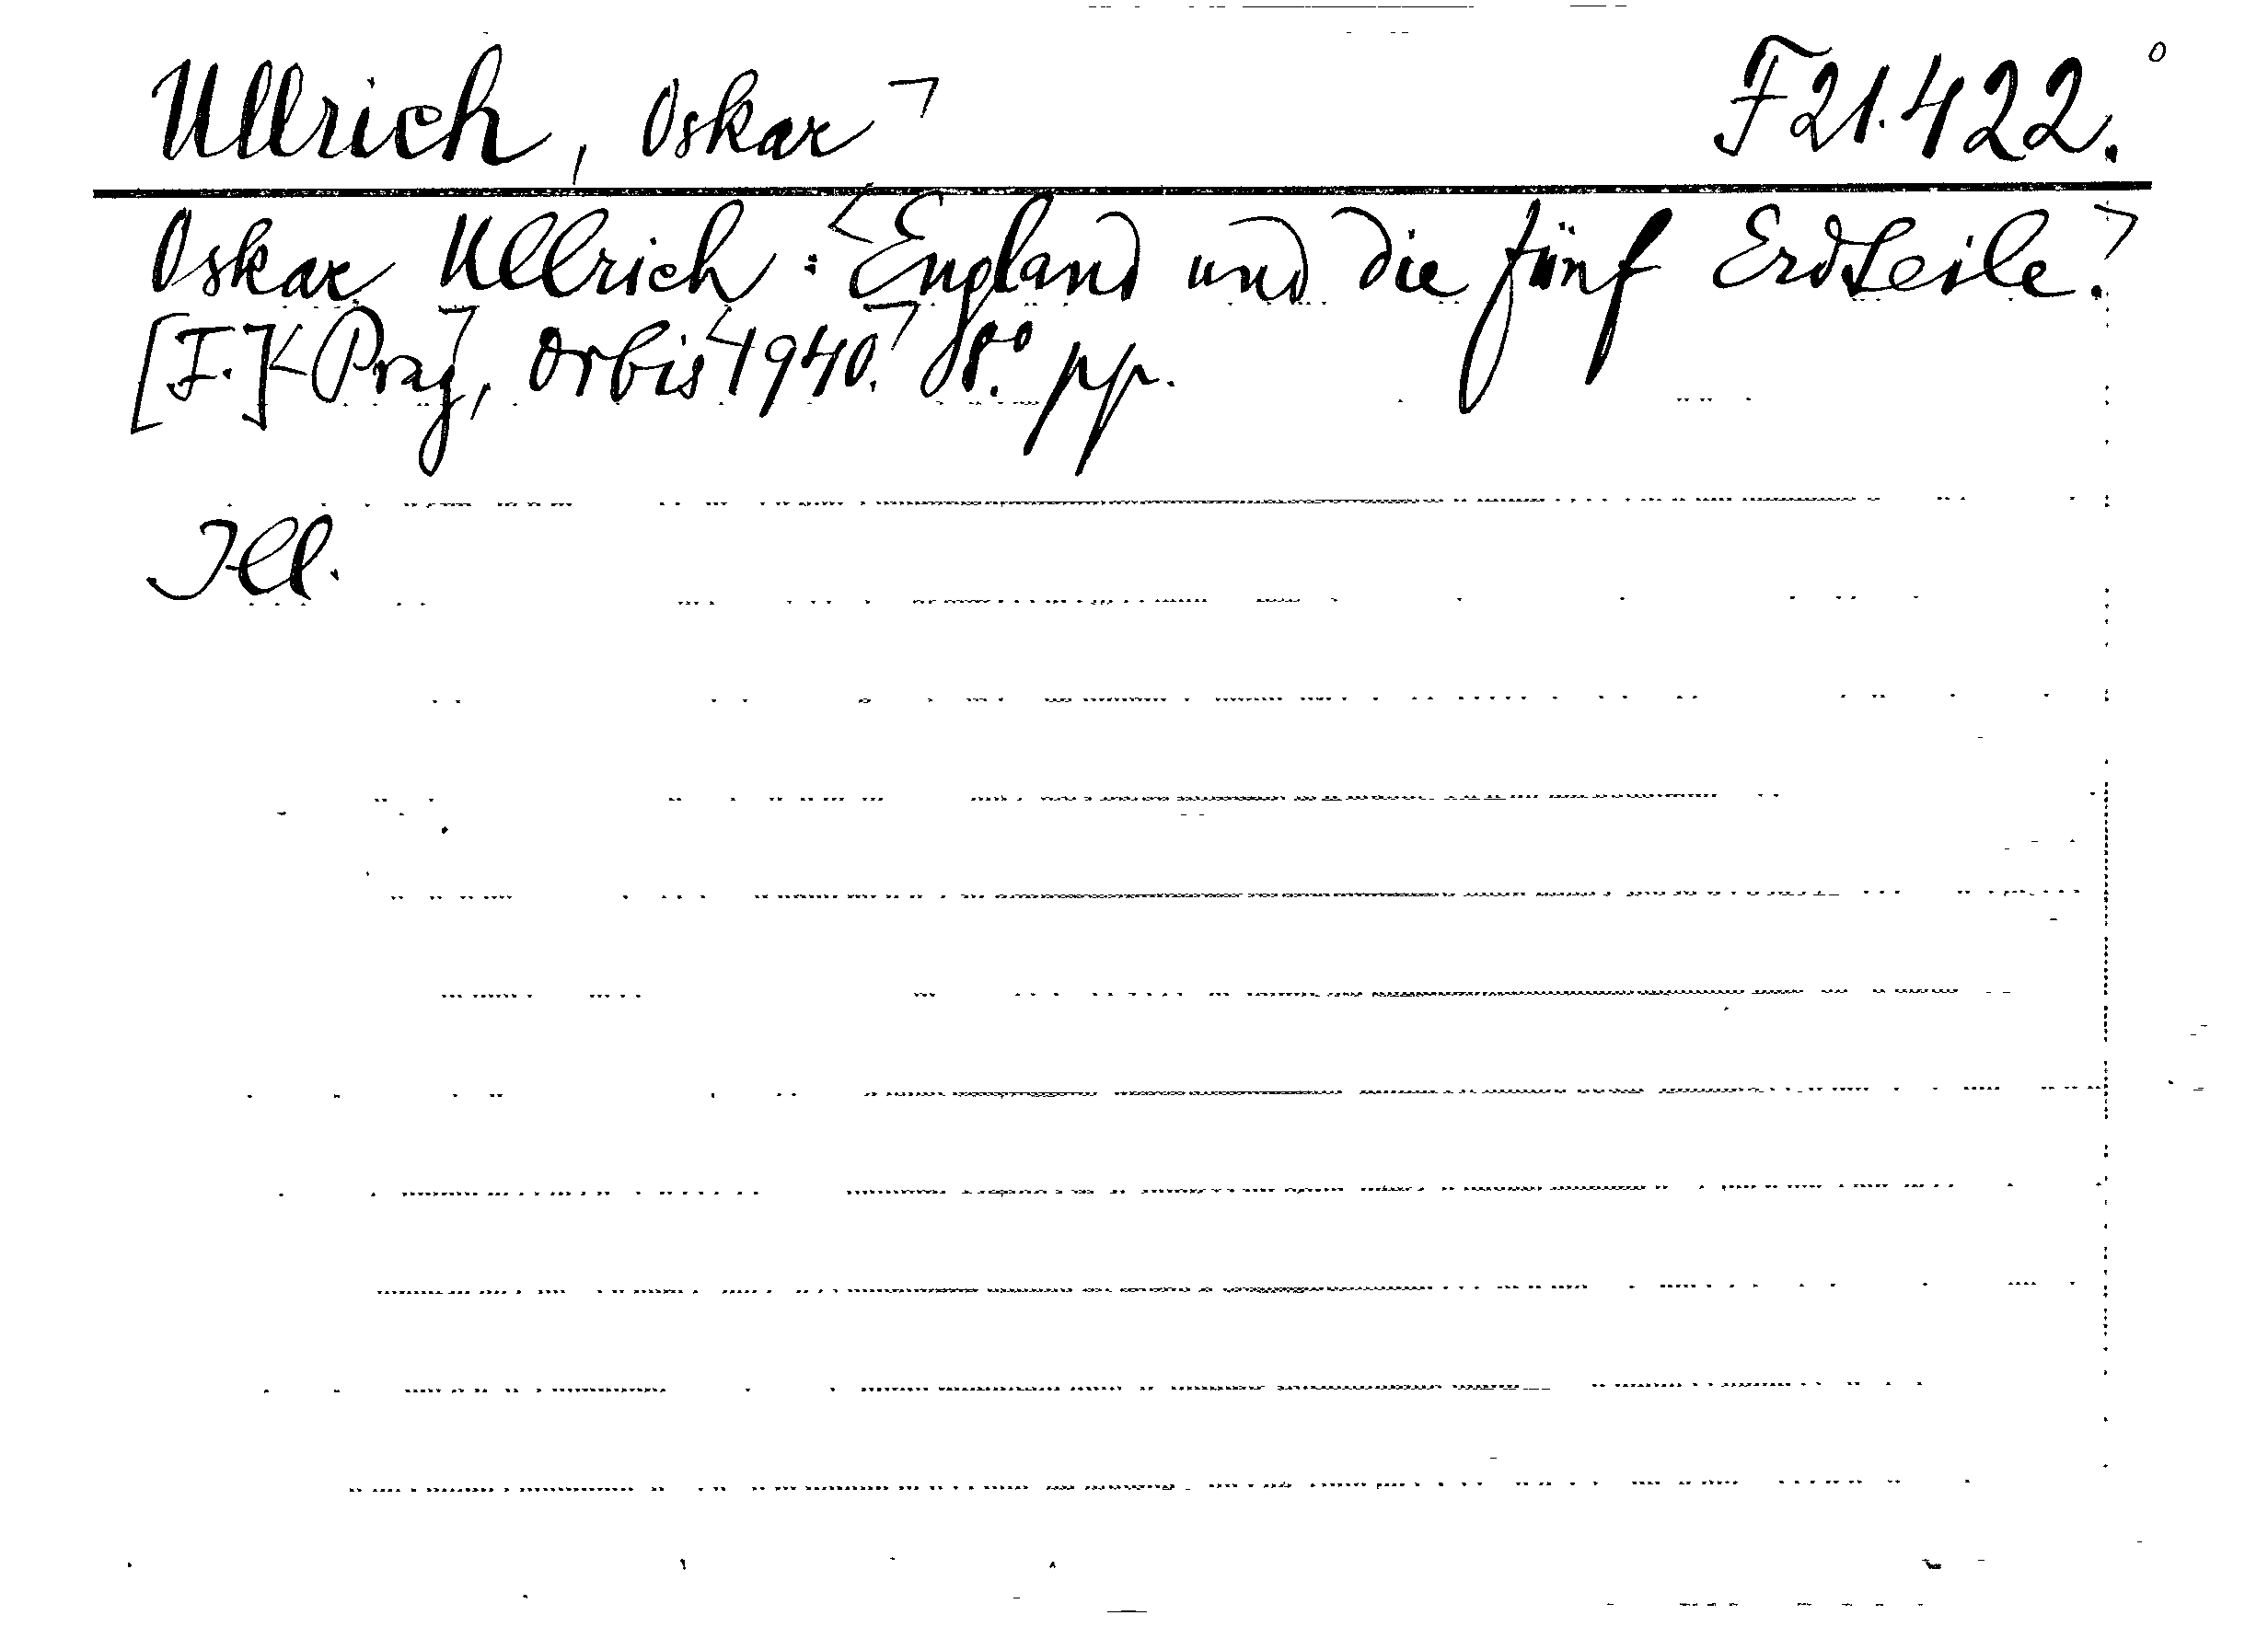 Ullrich, Oskar ⌝ F 21.422.°
Oskar Ullrich: <England und die fünf Erdteile.⌝
[I.] <Prag⌝, Orbis <1940.⌝ 8.° pp.
Ill.